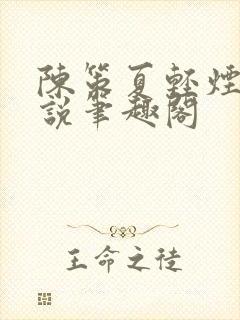 陳第夏輕煙
說筆趣閣
王命之徒